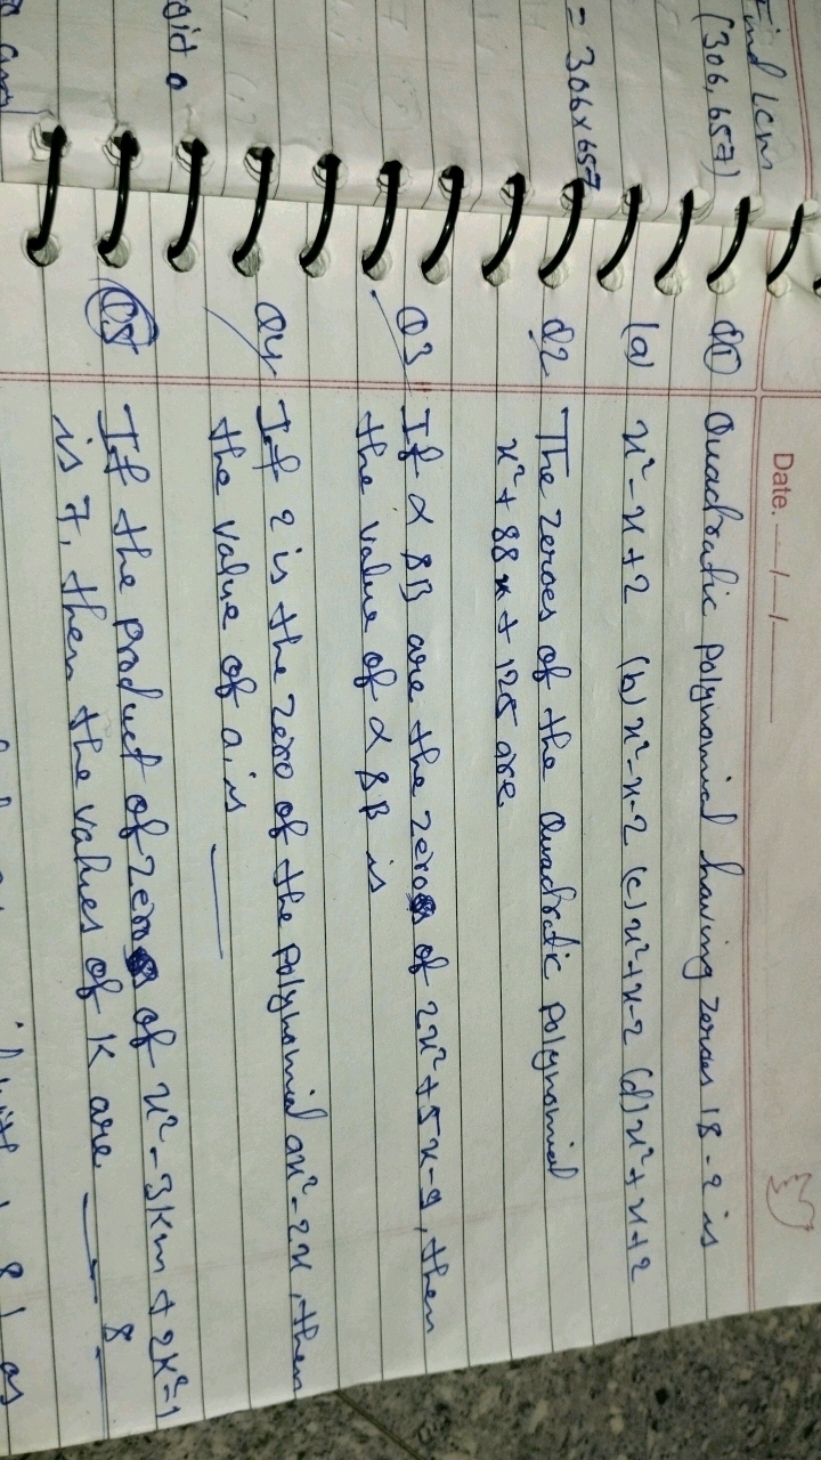 Find LCM
(306, 657)
= 306 × 657
Date. __/__/____
Q1 Quadratic polynomial having zeroes 1 & -2 is
(a) x² - x + 2 (b) x² - x - 2 (c) x² + x - 2 (d) x² + x + 2
Q2 The zeroes of the Quadratic polynomial
x² + 88x + 125 are
Q3 If α & β are the zeros of 2x² + 5x - 9, then
the value of α & β is
Q4 If 2 is the zero of the polynomial ax² - 2x, then
the value of a is ____
Q5 If the product of zeros of x² - 3km + 2k² - 1
is 7, then the values of K are ____ & __